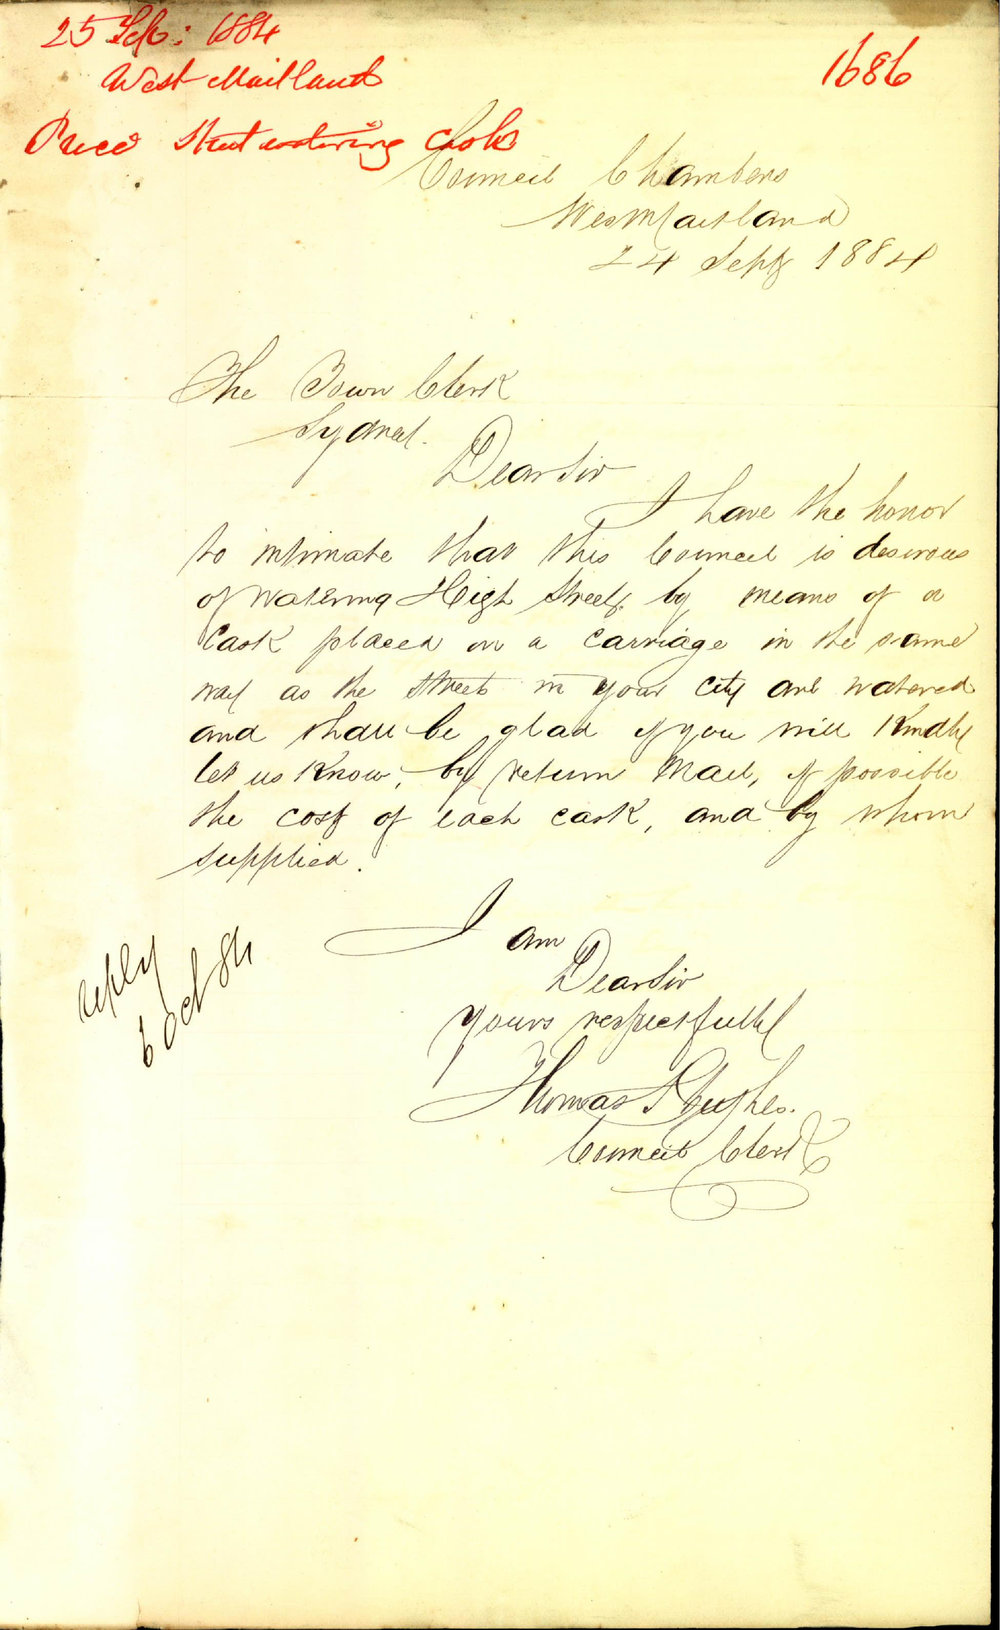 25 Sep: 1884
West Maitland
1686
Price Street watering Cask
Council Chambers
West Maitland
24 Sept 1884
The Town Clerk
Sydney.
Dear Sir
I have the honor
to intimate that this Council is desirous
of watering High Street, by means of a
Cask placed on a carriage in the same
way as the streets in your city are watered
and shall be glad if you will kindly
let us know, by return mail, if possible
the cost of each cask, and by whom
supplied.
I am
Dear Sir
yours respectfully
Thomas Hughes.
Council Clerk
reply
6 Oct 84